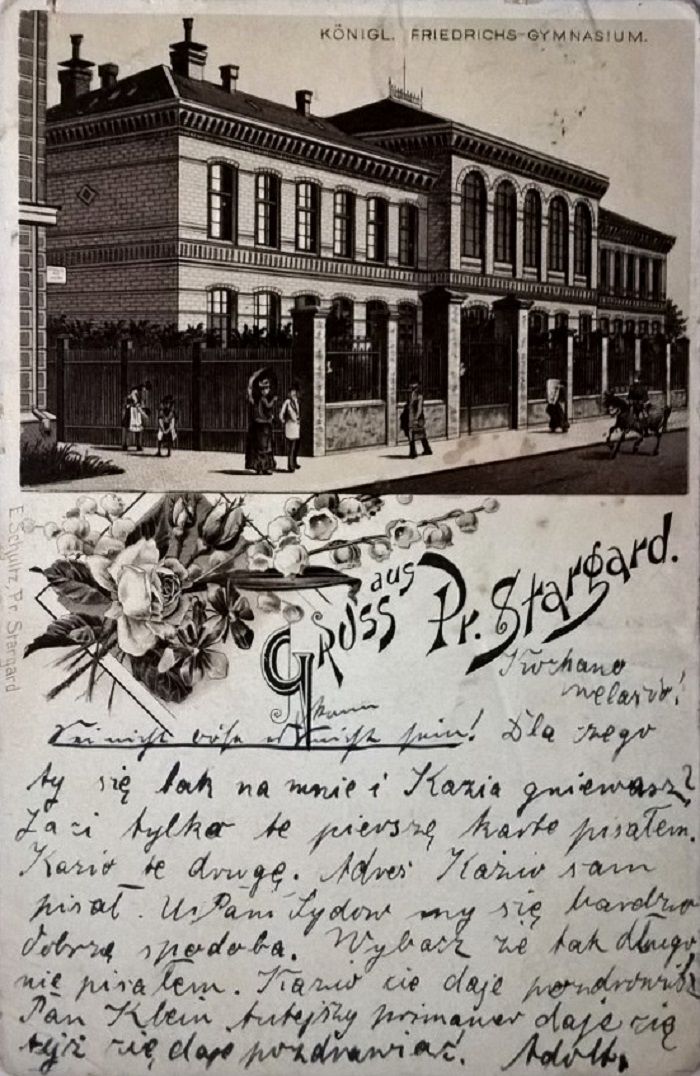 KÖNIGL. FRIEDRICHS-GYMNASIUM.
GRUSS aus Pr. Stargard.
E. Schultz, Pr. Stargard
Kochano
Sei nicht böse kann nicht sein! Dla czego
ty się tak na mnie i Kazia gniewasz?
Ja ci tylko te pierszę karte pisałem.
Kazio te drugę. Adres Kazio sam
pisał. U Pani Sydow my się bardzo
dobrze spodoba. Wybacz że tak długo
nie pisałem. Kazio cie daje pozdrowić
Pan Klein tutejszy primaner daje cię
tyż daje pozdrawiać. Adolf.